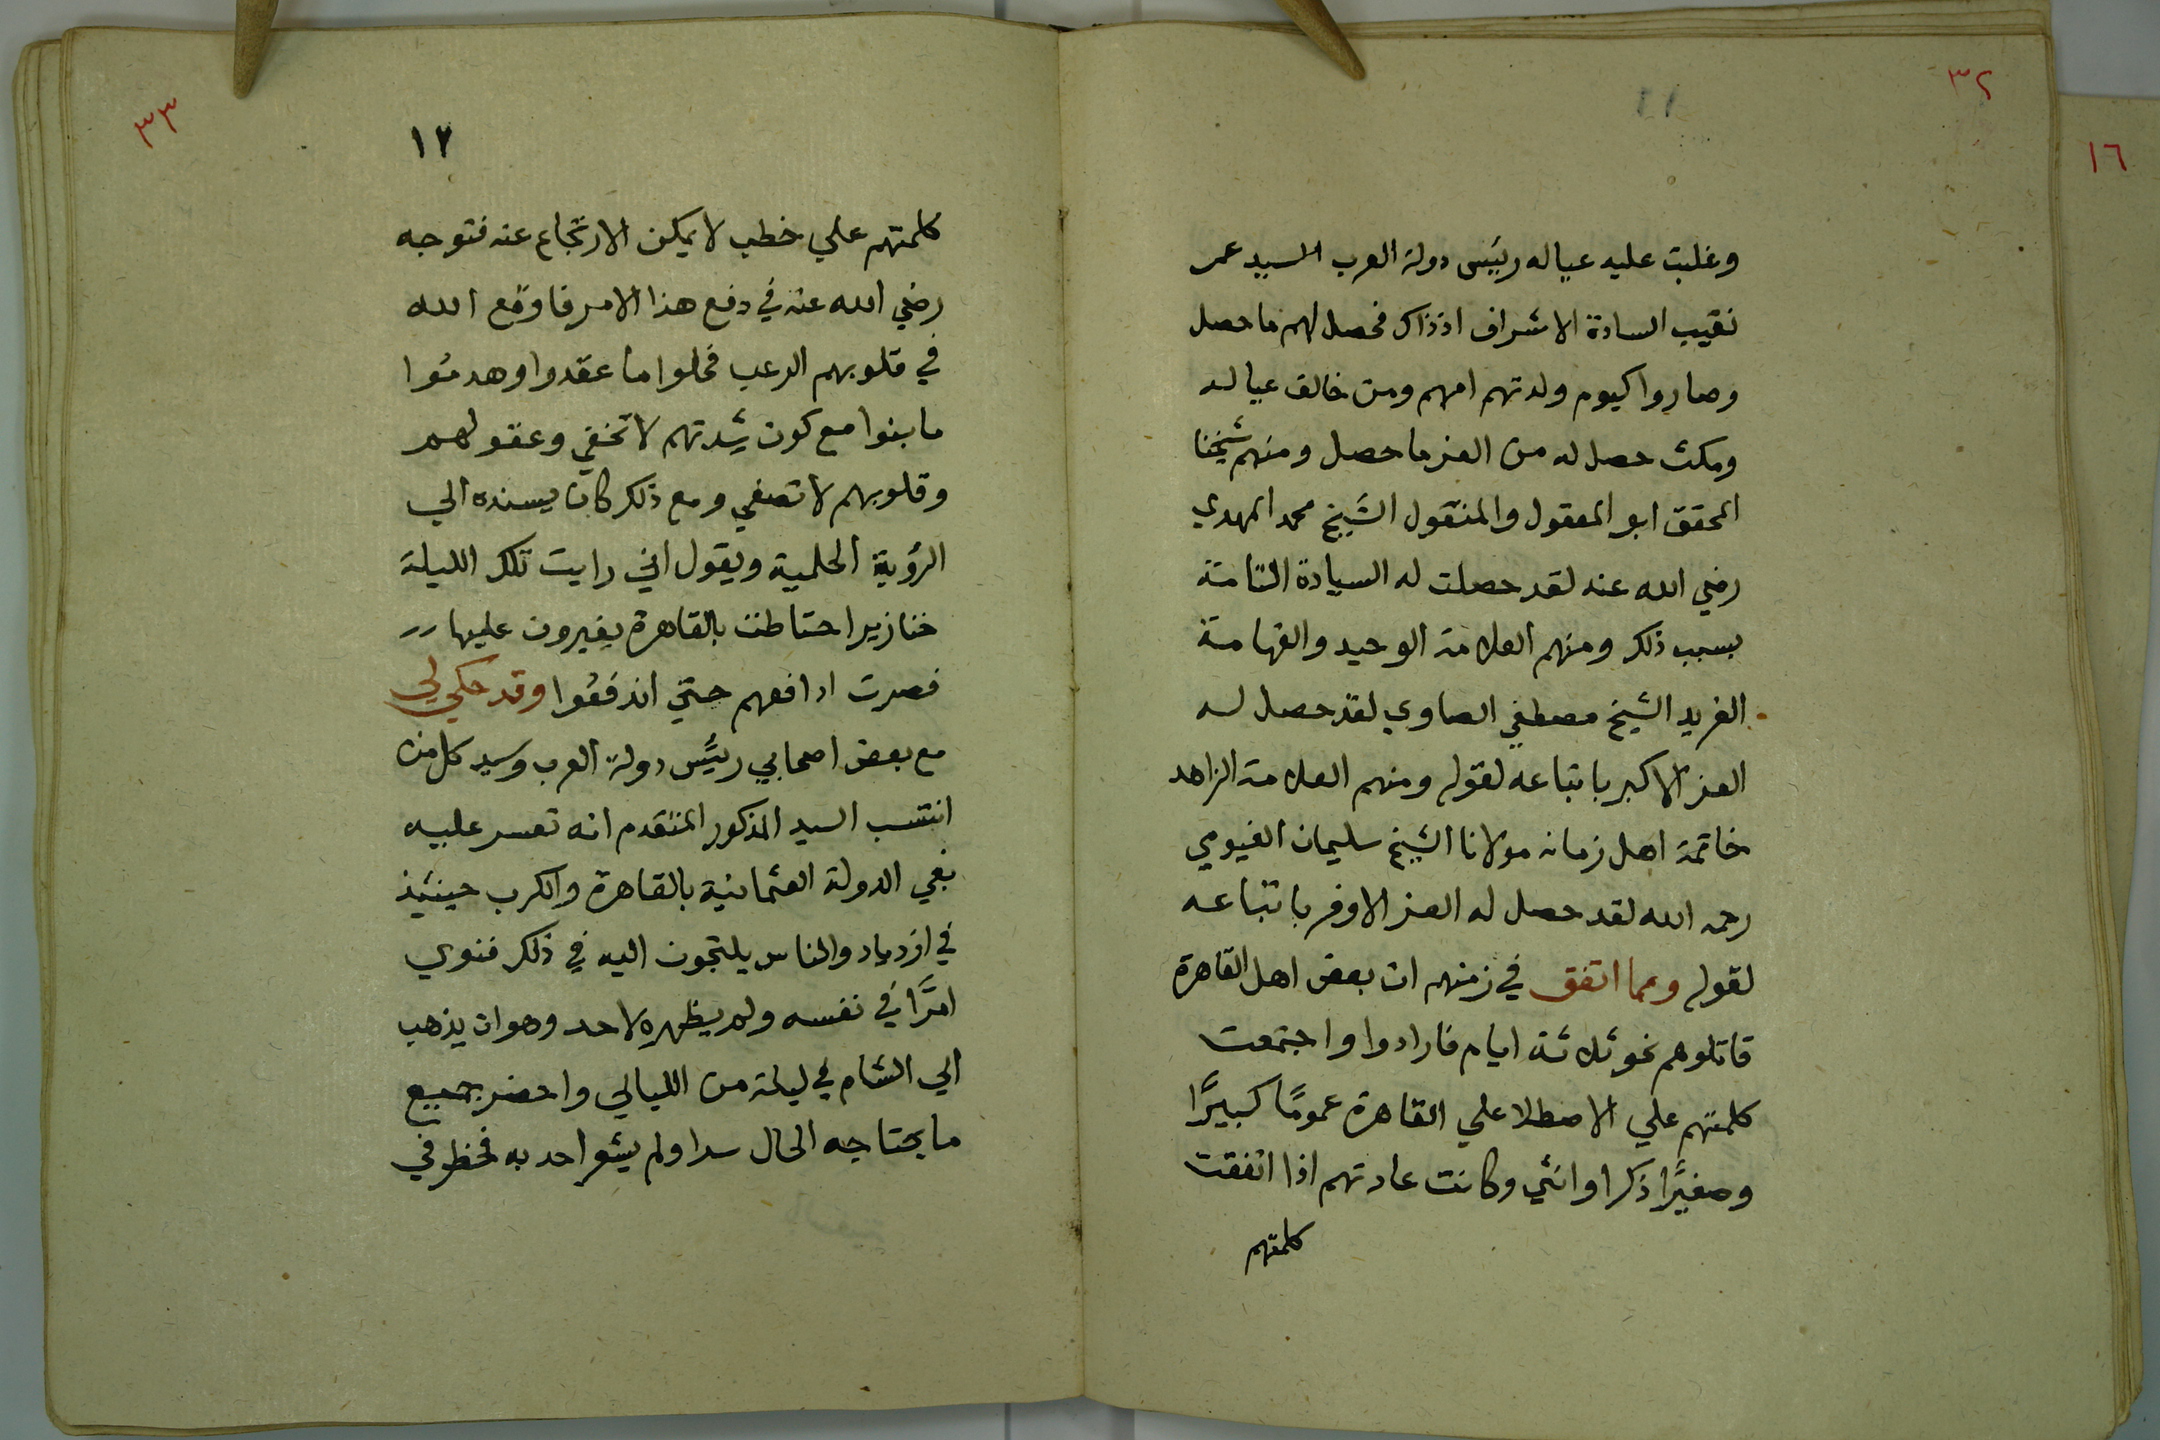 ٣٢
وغلبت عليه عياله رئيس دولة العرب السيد عمر
نقيب السادة الاشراف اذذاك فحصل لهم ما حصل
وصاروا كيوم ولدتهم امهم ومن خالف عياله
ومكث حصل له من العز ما حصل ومنهم شيخنا
المحقق ابو المعقول والمنقول الشيخ محمد المهدي
رضي الله عنه لقد حصلت له السيادة التامة
بسبب ذلك ومنهم العلامة الوحيد والفهامة
الفريد الشيخ مصطفي الصاوي لقد حصل له
العز الاكبر باتباعه لقوله ومنهم العلامة الزاهد
خاتمة اهل زمانه مولانا الشيخ سليمان الفيومي
رحمه الله لقد حصل له العز الاوفر باتباعه
لقوله ومما اتفق في زمنهم ان بعض اهل القاهرة
قاتلوهم نحو ثلاثة ايام فارادوا واجتمعت
كلمتهم علي الاصطلا علي القاهرة عمومًا كبيرًا
وصغيرًا ذكرا وانثي وكانت عادتهم اذا اتفقت
كلمتهم
١٦
٣٣
١٢
كلمتهم علي خطب لا يمكن الارتجاع عنه فتوجه
رضي الله عنه في دفع هذا الامر فاوقع الله
في قلوبهم الرعب فحلوا ما عقدوا وهدموا
ما بنوا مع كون شدتهم لا تخفي وعقولهم
وقلوبهم لا تصغي ومع ذلك كان يسنده الي
الرؤية الحلمية ويقول اني رايت تلك الليلة
خنازير احتاطت بالقاهرة يغيرون عليها
فصرت ادافعهم حتي اندفعوا وقد حكي لي
مع بعض اصحابي رئيس دولة العرب وسيد كل من
انتسب السيد المذكور المتقدم انه تعسر عليه
بغي الدولة العثمانية بالقاهرة والكرب حينئيذ
في ازدياد والناس يلتجون اليه في ذلك فنوي
امرًا في نفسه ولم يظهره لاحد وهو ان يذهب
الي الشام في ليلة من الليالي واحضر جميع
ما يحتاجه الحال سرا ولم يشعر احد به فخطر في